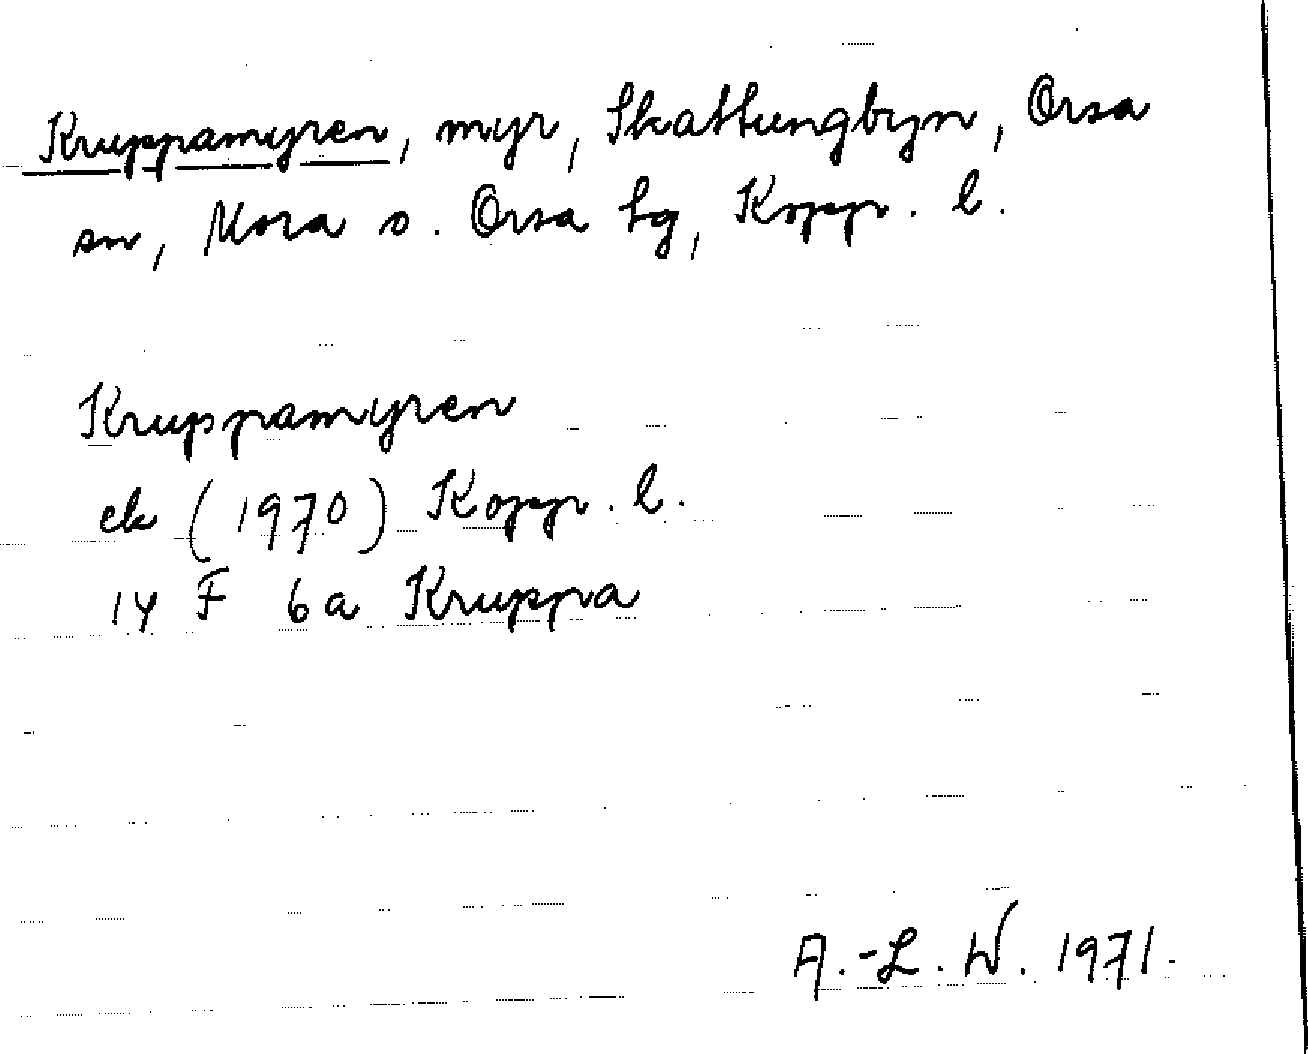 Kruppamyren, myr, Skattungbyn, Orsa
sn, Mora o. Orsa tg, Kopp. l.
Kruppamyren
ek (1970) Kopp. l.
14 F 6a Kruppa
A.-L. W. 1971.